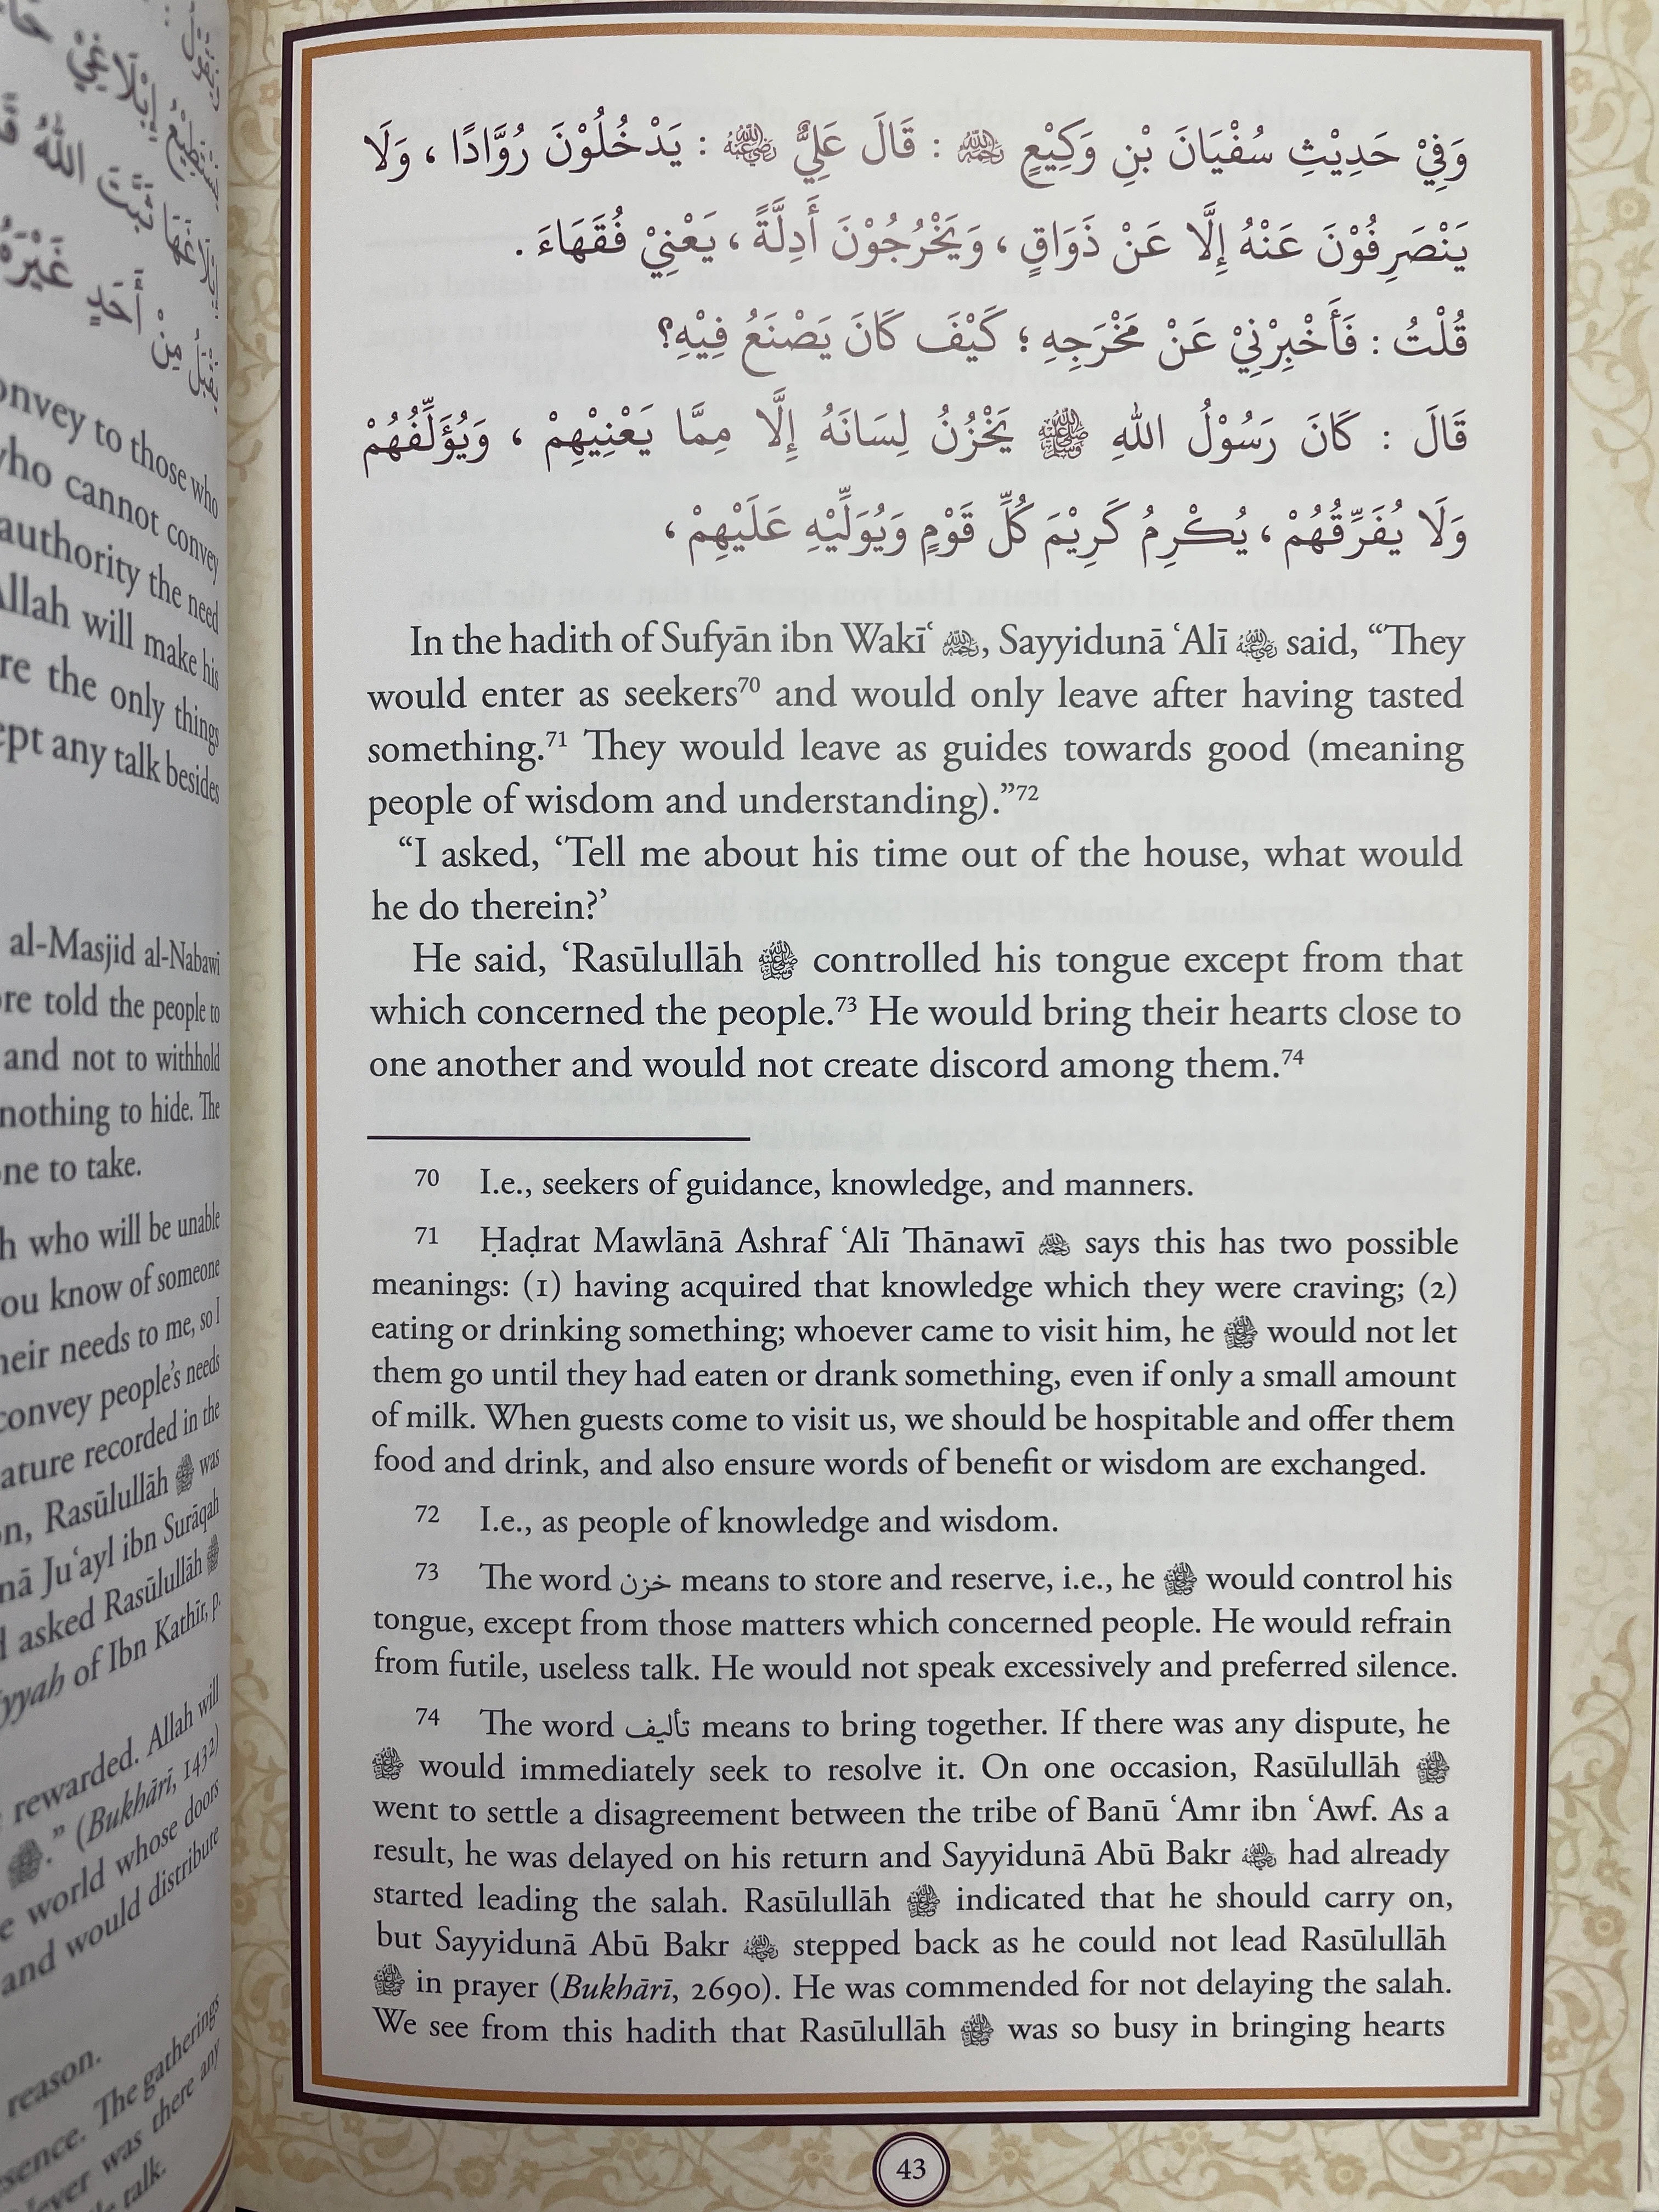 وَفِيْ حَدِيْثِ سُفْيَانَ بْنِ وَكِيْعٍ رحمه الله : قَالَ عَلِيٌّ رضي الله عنه : يَدْخُلُوْنَ رُوَّادًا ، وَلَا
يَنْصَرِفُوْنَ عَنْهُ إِلَّا عَنْ ذَوَاقٍ ، وَيَخْرُجُوْنَ أَدِلَّةً ، يَعْنِيْ فُقَهَاءَ .
قُلْتُ : فَأَخْبِرْنِيْ عَنْ مَخْرَجِهِ ؛ كَيْفَ كَانَ يَصْنَعُ فِيْهِ؟
قَالَ : كَانَ رَسُوْلُ اللهِ ﷺ يَخْزُنُ لِسَانَهُ إِلَّا مِمَّا يَعْنِيْهِمْ ، وَيُؤَلِّفُهُمْ
وَلَا يُفَرِّقُهُمْ ، يُكْرِمُ كَرِيْمَ كُلِّ قَوْمٍ وَيُوَلِّيْهِ عَلَيْهِمْ ،
In the hadith of Sufyān ibn Wakīʿ رحمه الله, Sayyidunā ʿAlī رضي الله عنه said, “They
would enter as seekers⁷⁰ and would only leave after having tasted
something.⁷¹ They would leave as guides towards good (meaning
people of wisdom and understanding).”⁷²
“I asked, ‘Tell me about his time out of the house, what would
he do therein?’
He said, ‘Rasūlullāh ﷺ controlled his tongue except from that
which concerned the people.⁷³ He would bring their hearts close to
one another and would not create discord among them.⁷⁴
70 I.e., seekers of guidance, knowledge, and manners.
71 Ḥaḍrat Mawlānā Ashraf ʿAlī Thānawī رحمه الله says this has two possible
meanings: (1) having acquired that knowledge which they were craving; (2)
eating or drinking something; whoever came to visit him, he ﷺ would not let
them go until they had eaten or drank something, even if only a small amount
of milk. When guests come to visit us, we should be hospitable and offer them
food and drink, and also ensure words of benefit or wisdom are exchanged.
72 I.e., as people of knowledge and wisdom.
73 The word خزن means to store and reserve, i.e., he ﷺ would control his
tongue, except from those matters which concerned people. He would refrain
from futile, useless talk. He would not speak excessively and preferred silence.
74 The word تأليف means to bring together. If there was any dispute, he
ﷺ would immediately seek to resolve it. On one occasion, Rasūlullāh ﷺ
went to settle a disagreement between the tribe of Banū ʿAmr ibn ʿAwf. As a
result, he was delayed on his return and Sayyidunā Abū Bakr رضي الله عنه had already
started leading the salah. Rasūlullāh ﷺ indicated that he should carry on,
but Sayyidunā Abū Bakr رضي الله عنه stepped back as he could not lead Rasūlullāh
ﷺ in prayer (Bukhārī, 2690). He was commended for not delaying the salah.
We see from this hadith that Rasūlullāh ﷺ was so busy in bringing hearts
43